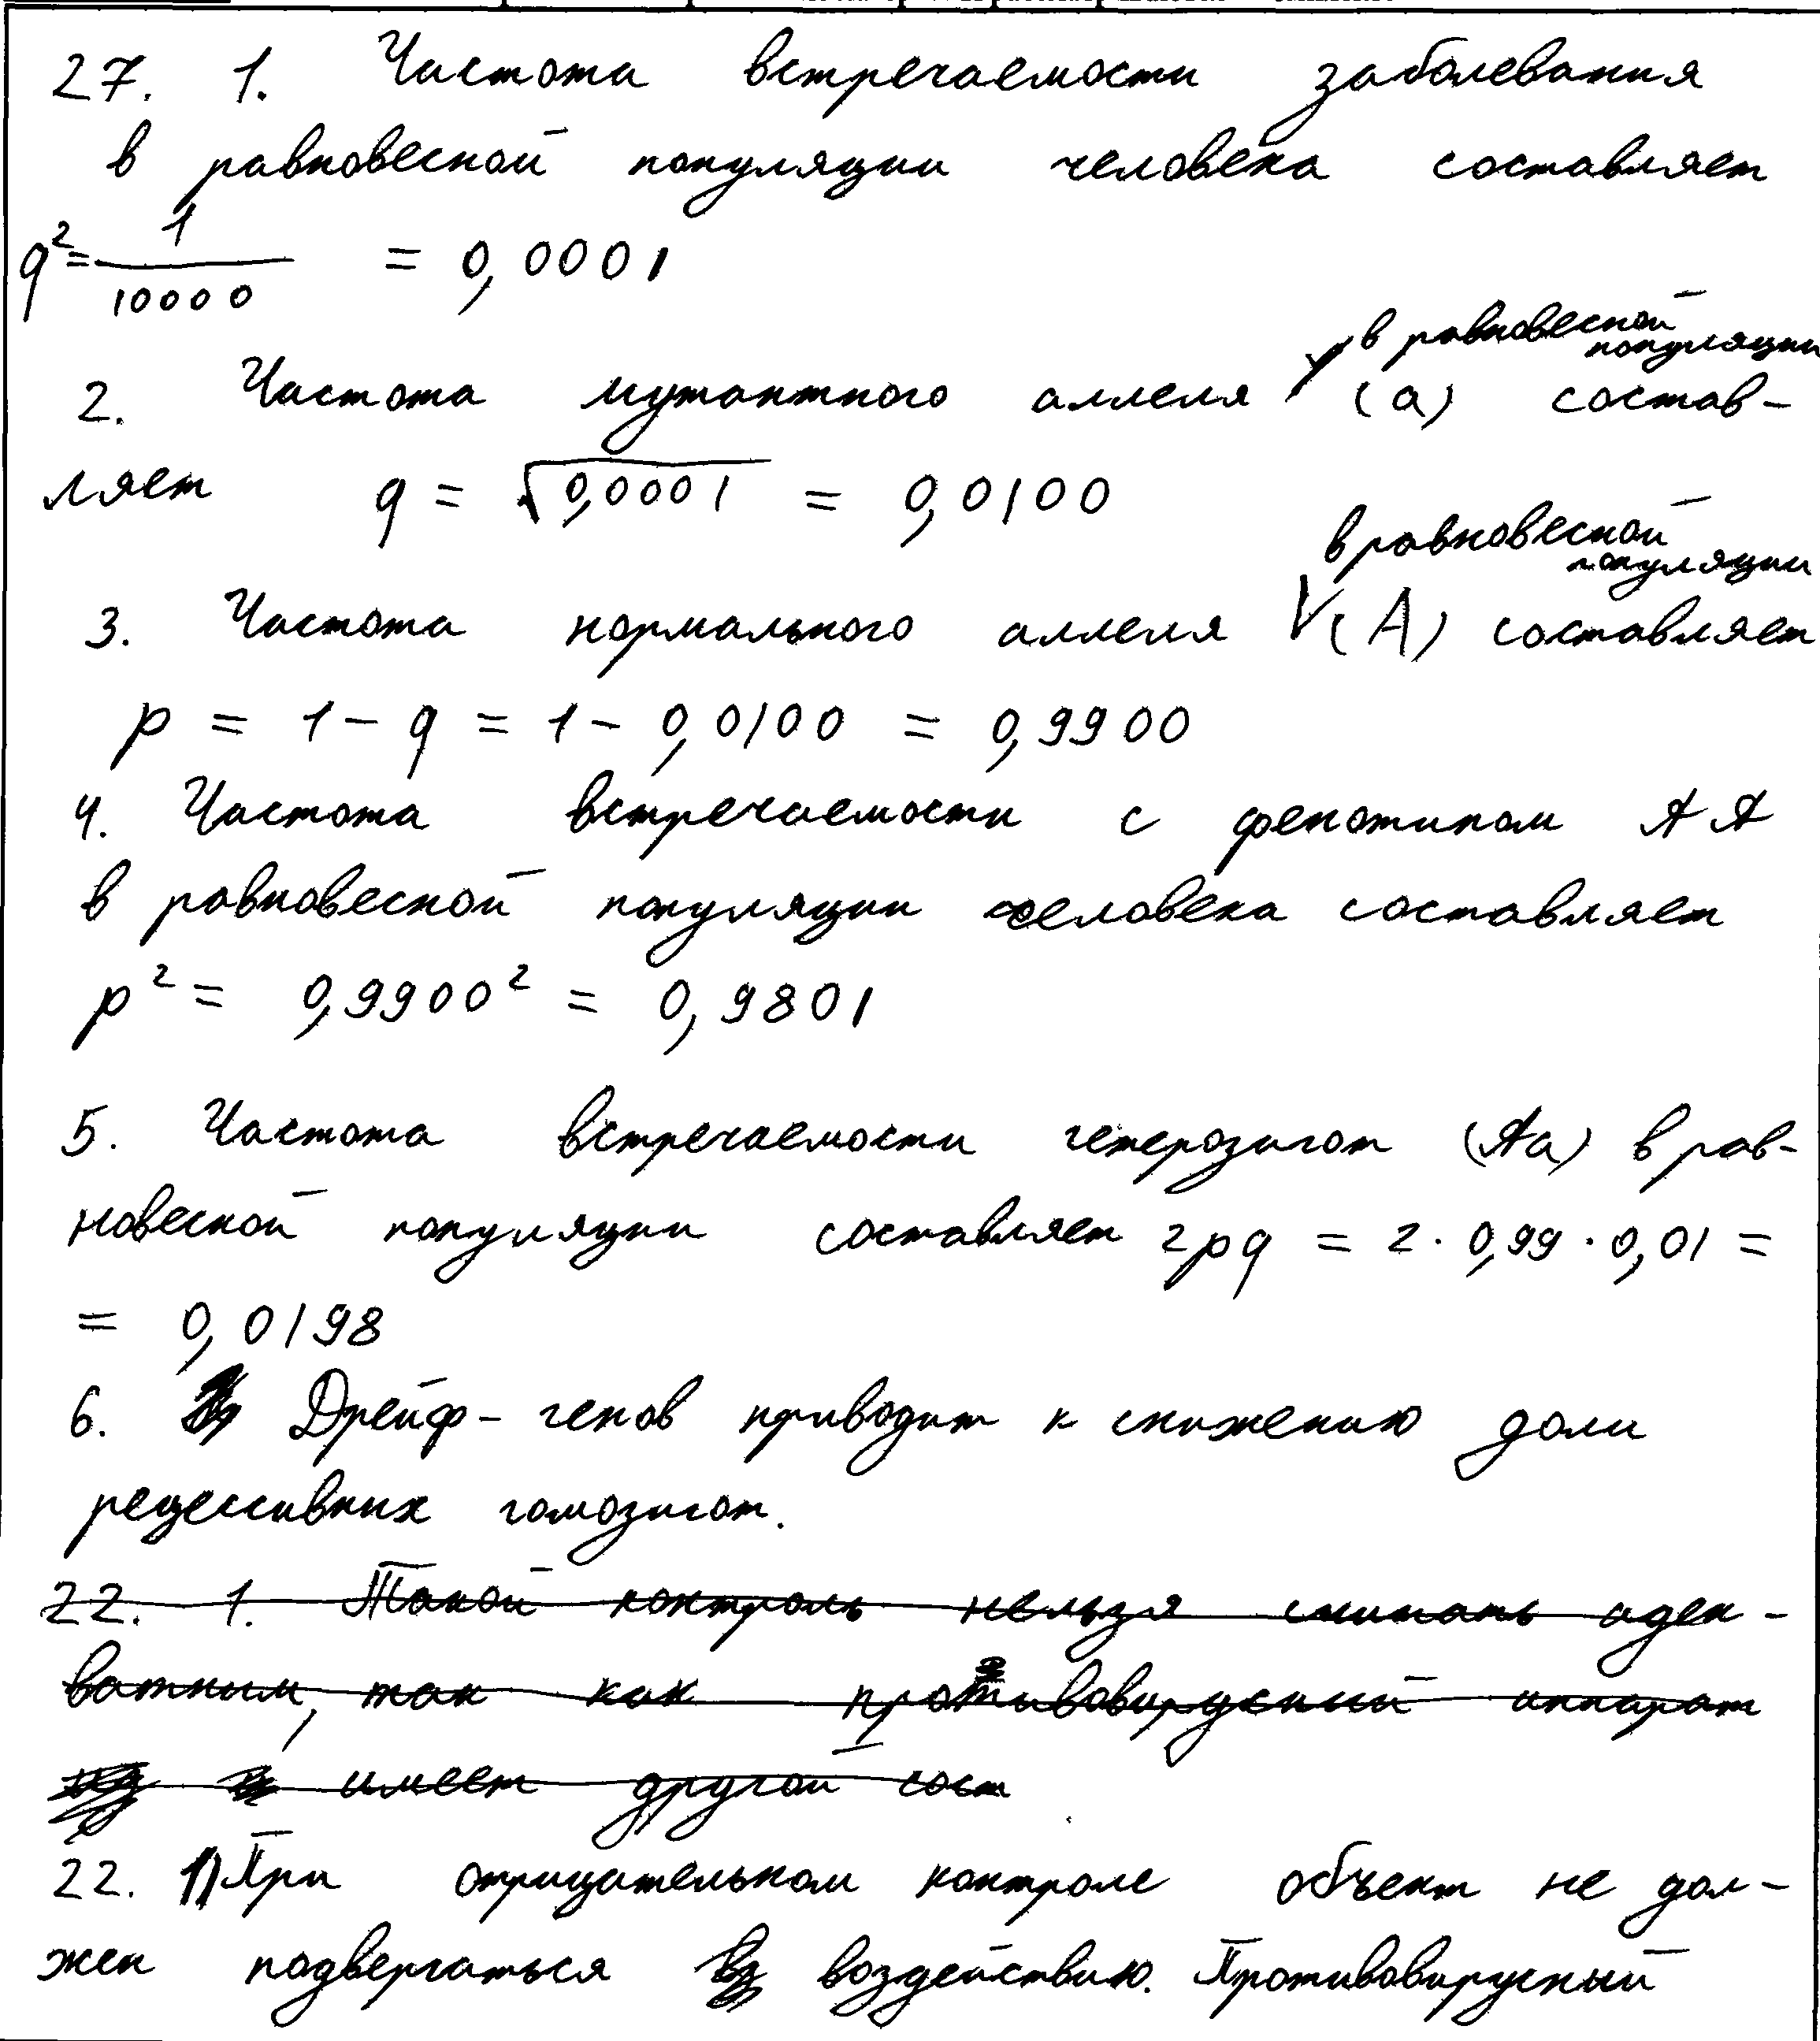 27. 1. Частота встречаемости заболевания
в равновесной популяции человека составляет
q² = 1/10000 = 0,0001
в равновесной популяции
2. Частота мутантного аллеля V (а) состав-
ляет q = √0,0001 = 0,0100
в равновесной популяции
3. Частота нормального аллеля V (А) составляет
p = 1 - q = 1 - 0,0100 = 0,9900
4. Частота встречаемости с фенотипом АА
в равновесной популяции человека составляет
p² = 0,9900² = 0,9801
5. Частота встречаемости гетерозигот (Аа) в рав-
новесной популяции составляет 2pq = 2 · 0,99 · 0,01 =
= 0,0198
6. Дрейф-генов приводит к снижению доли
рецессивных гомозигот.
22. 1. Такой контроль нельзя считать адек-
ватным, так как противовирусный аппарат
имеет другой сост
22. 1) При отрицательном контроле объект не дол-
жен подвергаться воздействию. Противовирусный